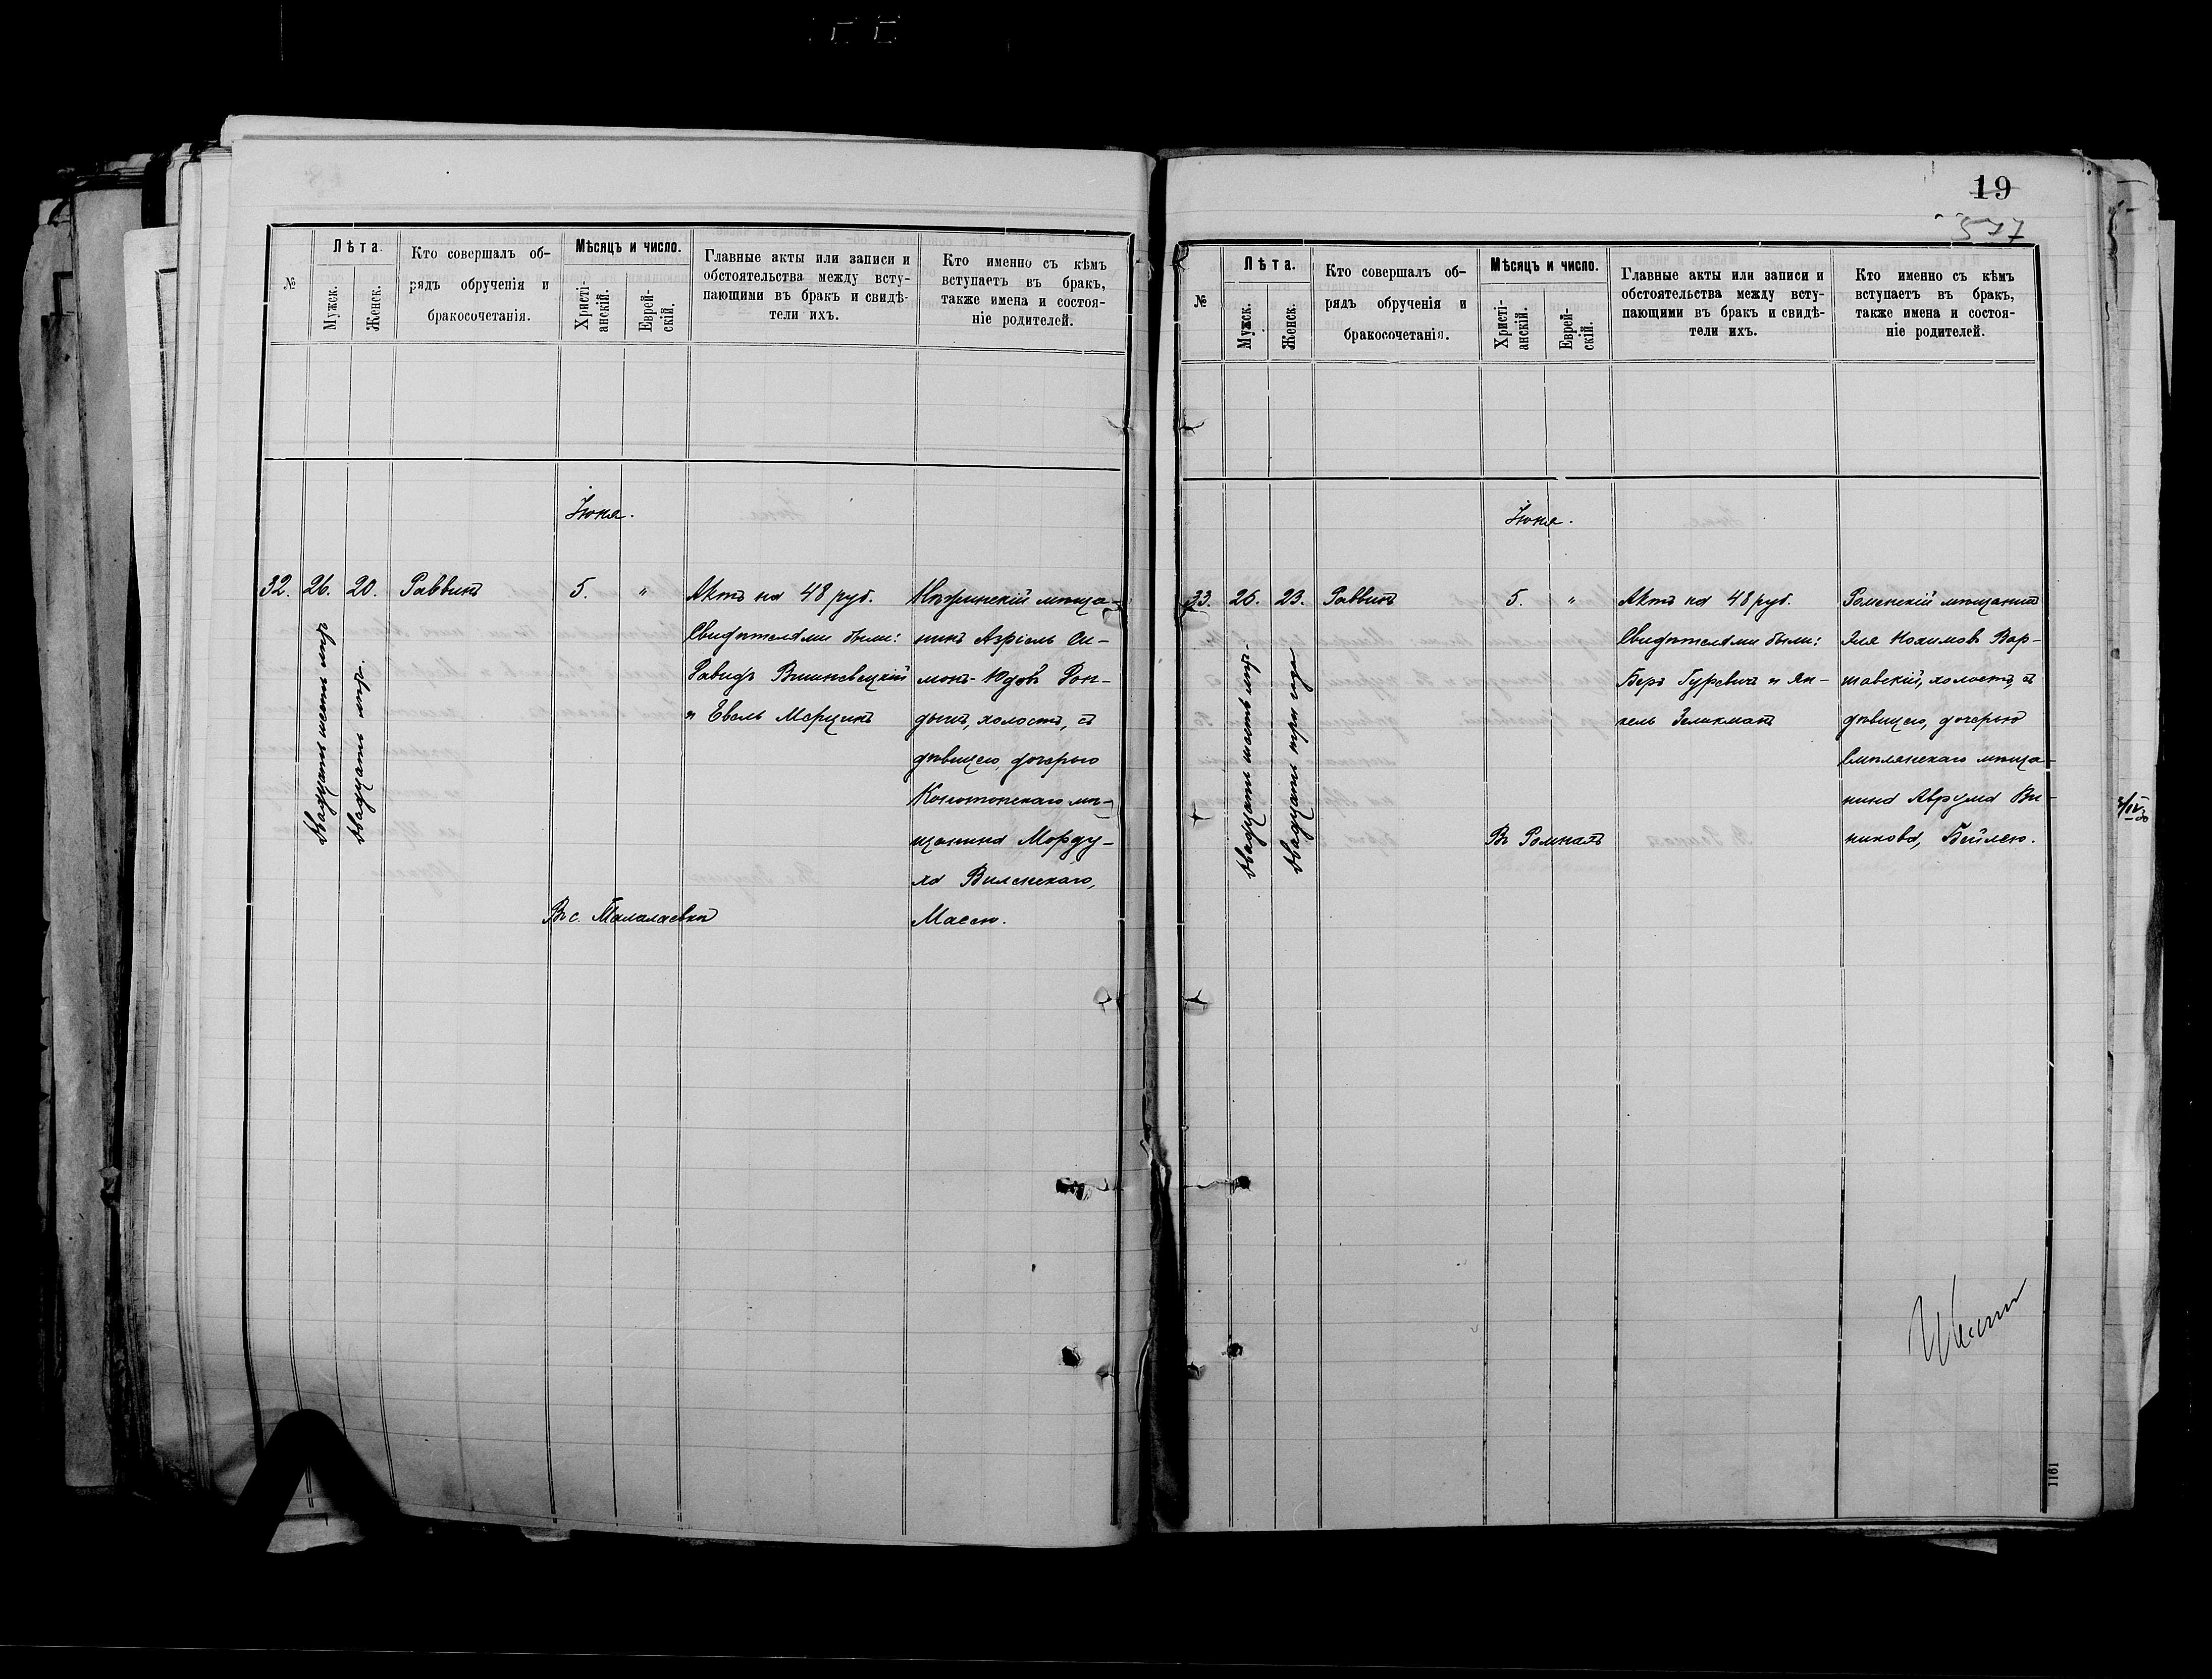 №
Лѣта.
Мужск.
Женск.
Кто совершалъ об-
рядъ обрученія и
бракосочетанія.
Мѣсяцъ и число.
Христі-
анскій.
Еврей-
скій.
Главные акты или записи и
обстоятельства между всту-
пающими въ бракъ и свидѣ-
тели ихъ.
Кто именно съ кѣмъ
вступаетъ въ бракъ,
также имена и состоя-
ніе родителей.
Іюня.
32.
26.
двадцать шесть лѣтъ
20.
двадцать лѣтъ.
Раввинъ
5.
"
Актъ на 48 руб.
Свидѣтелями были:
Давидъ Вишневецкій
и Евель Мерцинъ
Нѣжинскій мѣща-
нинъ Азріель Си-
монъ-Юдовъ Рон-
динъ, холостъ, съ
дѣвицею, дочерью
Конотопскаго мѣ-
щанина Морду-
ха Виленскаго,
Масею.
Въ с. Талалаевкѣ
19
577
№
Лѣта.
Мужск.
Женск.
Кто совершалъ об-
рядъ обрученія и
бракосочетанія.
Мѣсяцъ и число.
Христі-
анскій.
Еврей-
скій.
Главные акты или записи и
обстоятельства между всту-
пающими въ бракъ и свидѣ-
тели ихъ.
Кто именно съ кѣмъ
вступаетъ въ бракъ,
также имена и состоя-
ніе родителей.
Іюня.
33.
25.
двадцать пять лѣтъ.
23.
двадцать три года
Раввинъ
5.
"
Актъ на 48 руб.
Свидѣтелями были:
Беръ Гуревичъ и Ян-
кель Зеликманъ
Роменскій мѣщанинъ
Эля Нохимовъ Вар-
шавскій, холостъ, съ
дѣвицею, дочерью
Смѣлянскаго мѣща-
нина Аврума Ви-
никова, Бейлею.
Въ Ромнахъ
1161